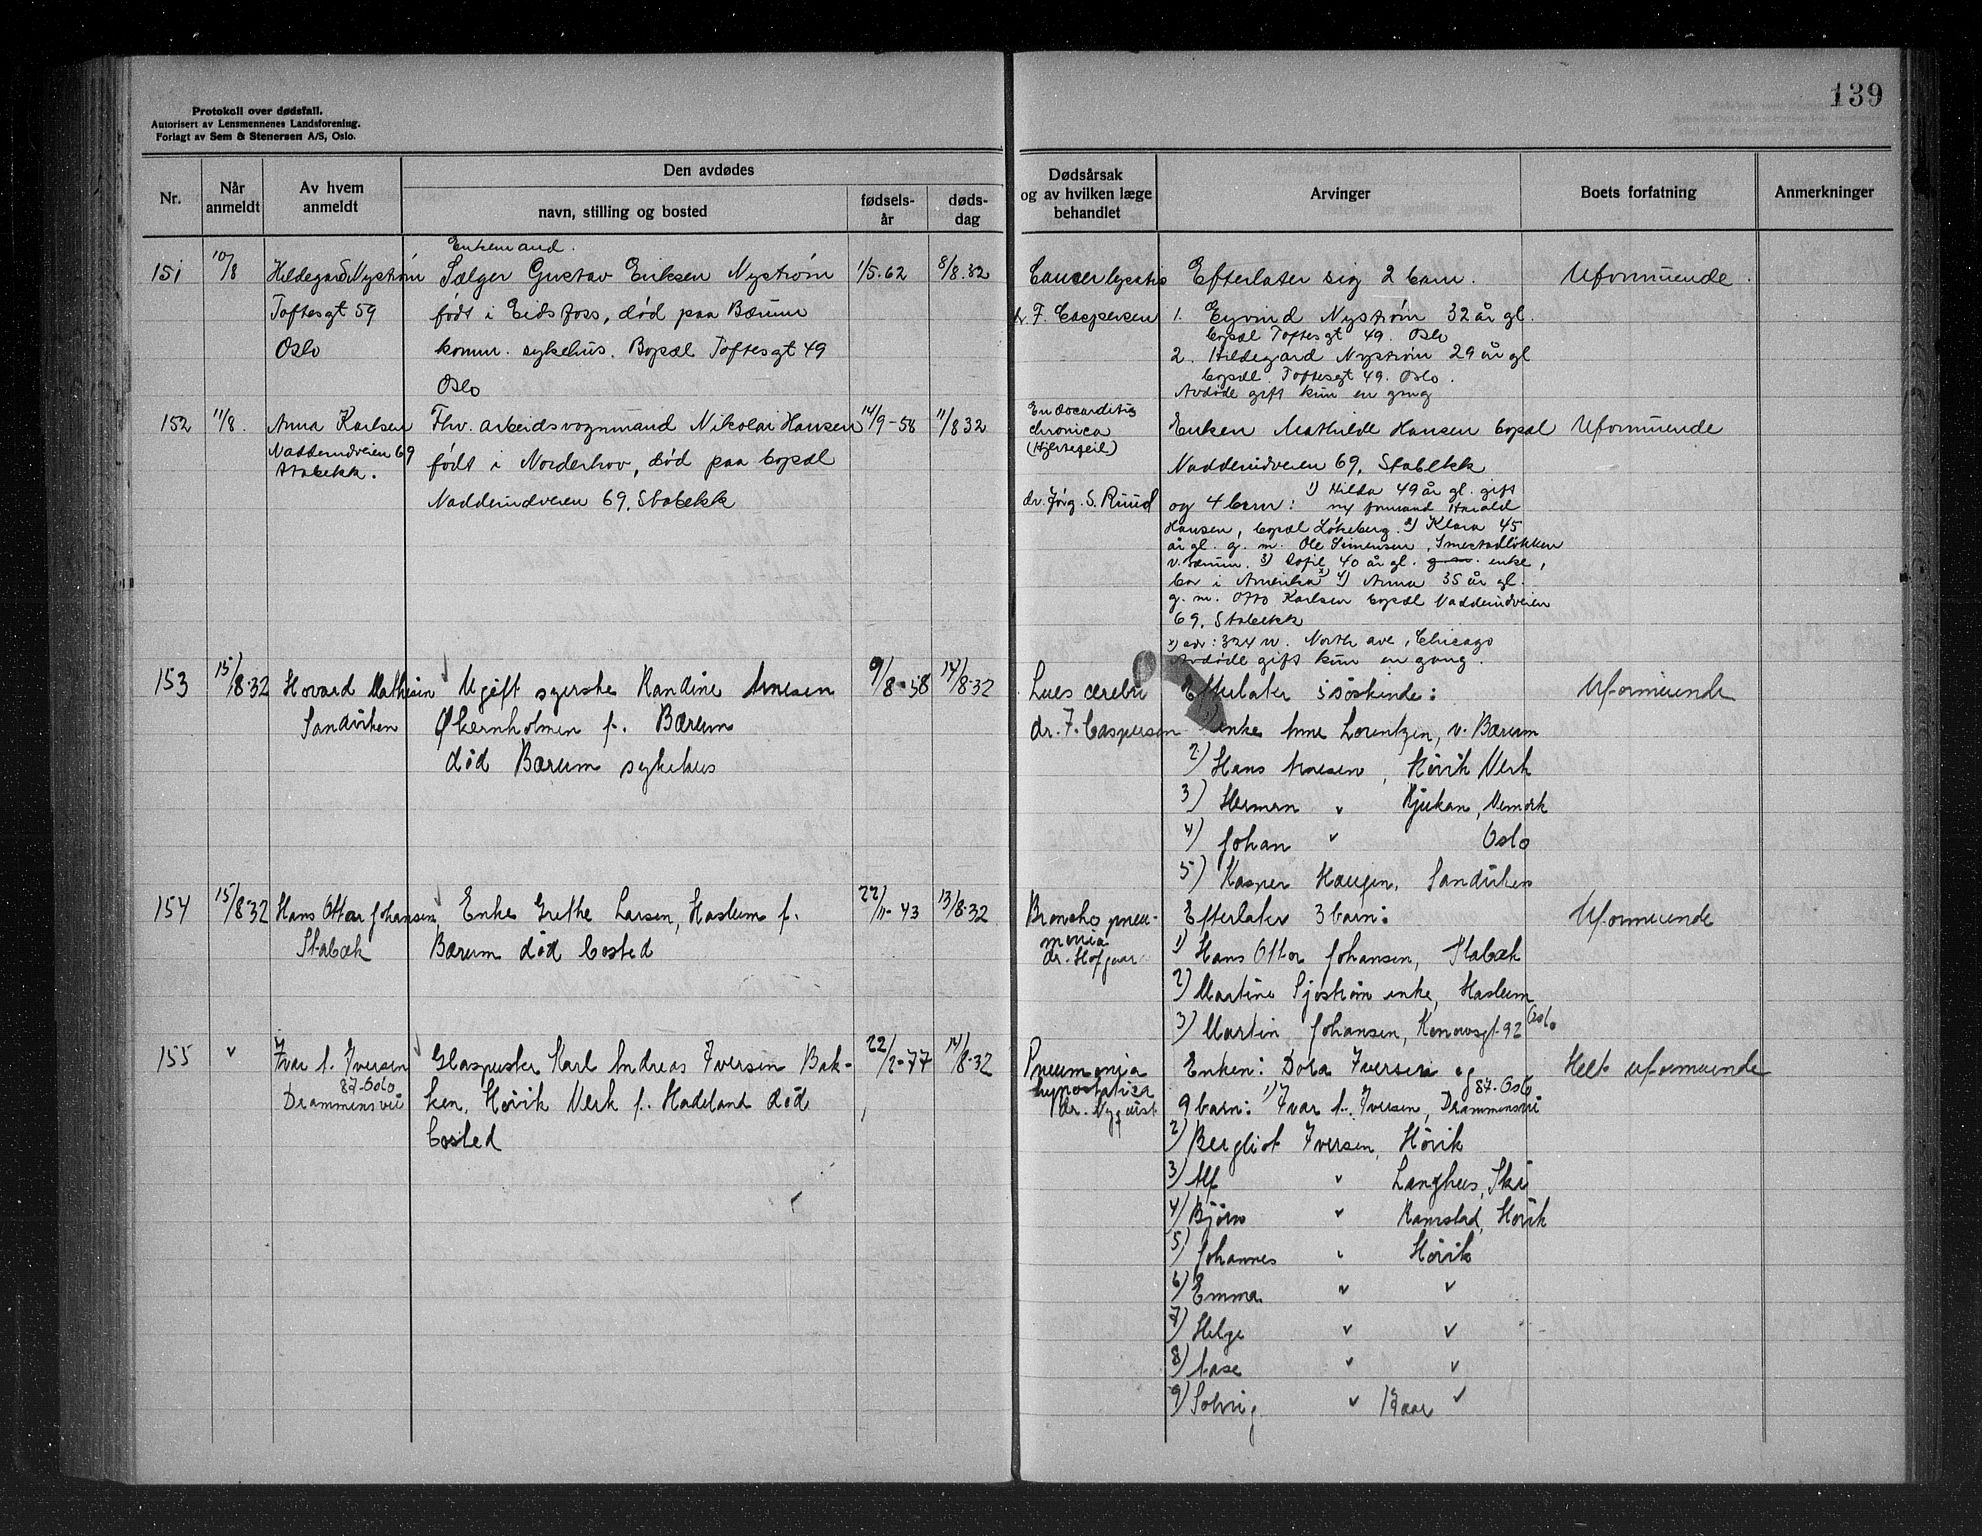 Protokoll over dødsfall.
Autorisert av Lensmennenes Landsforening.
Forlagt av Sem & Stenersen A/S, Oslo.
139
Nr.
Når anmeldt
Av hvem anmeldt
Den avdødes
navn, stilling og bosted
fødsels-år
døds-dag
Dødsårsak og av hvilken læge behandlet
Arvinger
Boets forfatning
Anmerkninger
151
10/8
Hildegard Nystrøm
Toftesgt 59
Oslo
Enkemand.
Sælger Gustav Eriksen Nystrøm
født i Eidsfoss, død paa Bærum
komm. sykehus. Bopæl Toftesgt 49
Oslo
1/5-62
8/8.32
Cancer
dr F. Caspersen
Efterlater sig 2 barn.
1. Eyvind Nystrøm 32 år gl.
bopæl Toftesgt 49. Oslo
2. Hildegard Nystrøm 29 år gl
bopæl Toftesgt 49. Oslo.
Avdøde gift kun en gang
Uformuende.
152
11/8.
Anna Karlsen
Nadderudveien 69
Stabekk.
Fhv. arbeidsvognmand Nikolai Hansen
født i Norderhov, død paa bopæl
Nadderudveien 69, Stabekk
14/9-58
11/8 32
Endocarditis
chronica
(Hjertefeil)
dr. Jørg. S. Ruud
Enken Mathilde Hansen bopæl
Nadderudveien 69, Stabekk
og 4 barn: 1) Hilda 49 år gl. gift
m formand Harald
Hansen, bopæl Løkeberg. 2) Klara 45
år gl. g. m. Ole Simensen, Smestadløkken
v. Bærum. 3) Sofie 40 år gl. g. m. enke,
bor i Amerika x) 4) Anna 35 år gl.
g. m. Otto Karlsen bopæl Nadderudveien
69, Stabekk
x) adr: 324 W. North ave, Chicago
Avdøde gift kun en gang.
Uformuende
153
15/8.32
Hovard Mathisen
Sandviken
Ugift syerske Randine Arnesen
Økernholmen p. Bærum
død Bærum sykehus
9/8-58
14/8.32
Lues cerebri
dr. F. Caspersen
Efterlater 5 søskinde:
1) enke Anne Lorentzen, v. Bærum
2) Hans Arnesen, Høvik Verk
3) Herman " Rjukan, Vemork
4) Johan " Oslo
5) Kasper Haugen, Sandviken
Uformuende
154
15/8 32
Hans Ottar Johansen
Stabæk
Enke Grethe Larsen, Haslum p.
Bærum død bosted
22/11-43
13/8.32
Broncho pneu-
monia
dr. Hofgaar
Efterlater 3 barn:
1) Hans Ottar Johansen, Stabæk
2) Martine Sjøstrøm enke, Haslum
3) Martin Johansen, Konowsgt. 92 Oslo
Uformuende
155
"
Ivar A. Iversen
87-Oslo
Drammensvei
Glaspuster Karl Andreas Iversen Bak-
ken, Høvik Verk f. Hadeland død
bosted
22/2-77
14/8.32
Pneumonia
hypostatica
dr. Nyquist
Enken: Dora Iversen og
9 barn: 1) Ivar A. Iversen, Drammensvei 87-Oslo
2) Bergliot Iversen, Høvik
3) Alf " Langhus, Ski
4) Bjørn " Ramstad, Høvik
5) Johannes " Høvik
6) Emma " "
7) Helge " "
8) Aase " "
9) Solvei " 12 aar "
Helt uformuende